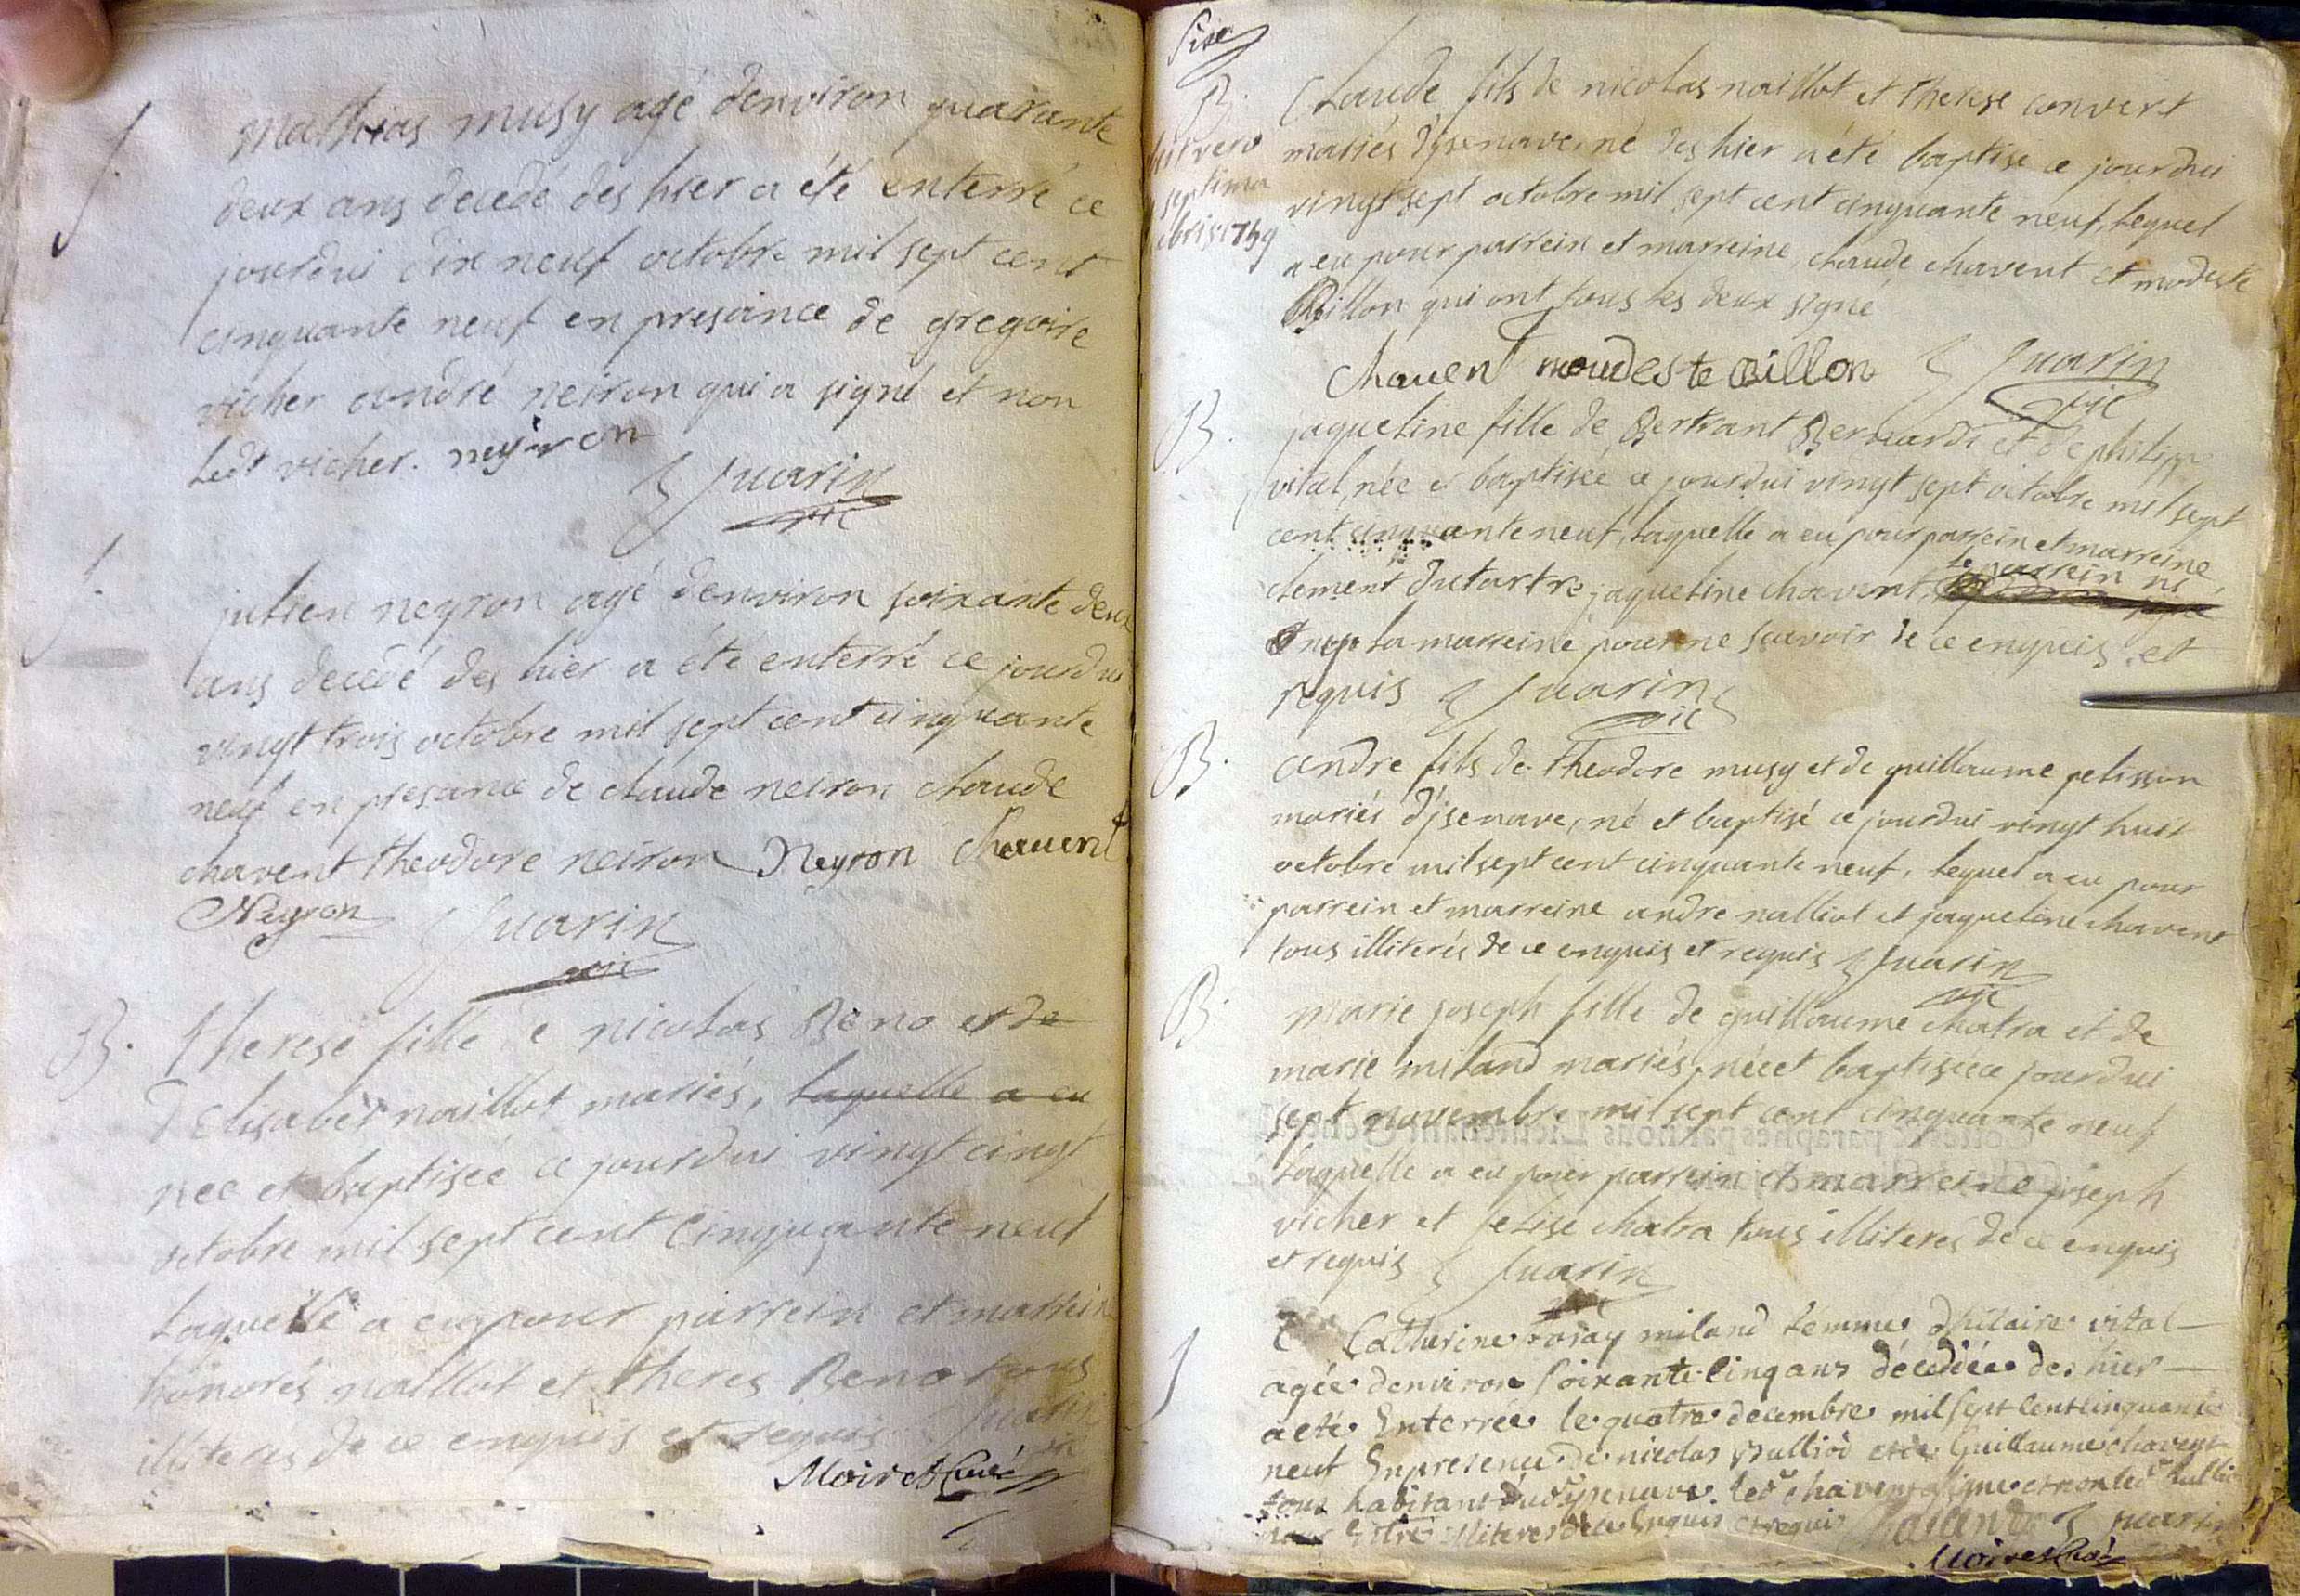 Mathias musy agé denviron quarante
deux ans decedé des hier a été enterré ce
jourdui dix neuf octobre mil sept cent
cinquante neuf en presance de gregoire
vicher andré neiron qui a signé et non
ledt vicher. neyron
Juarin
vic
julien neyron agé denviron soixante deux
ans decedé des hier a été enterré ce jourdui
vingt trois octobre mil sept cent cinquante
neuf en presance de claude neiron claude
chavent theodore neiron Neyron Chauent
Neyron Juarin
vic
B. therese fille de nicolas Beno et de
d'elisabet naillot mariés, laquelle a eu
née et baptisée ce jourdui vingt cinqt
octobre mil sept cent cinquante neuf
laquelle a eu pour parrein et marrein
honorés naillot et theres Beno tous
illiteres de ce enquis et requis Juarin
Moiret Curé
Sixe
B. Claude fils de nicolas naillot et therese convert
mariés d'jsenave, né des hier a été baptisé ce jourdui
vingt sept octobre mil sept cent cinquante neuf, lequel
a eu pour parrein et marreine, claude chavent et modeste
Billon qui ont tous les deux signé
septima
bris 1759
Chauent moudeste Billon Juarin
vic
B. jaqueline fille de Bertrant Bernardi et de philipp
vital, née et baptisée ce jourdui vingt sept octobre mil sept
cent cinquante neuf, laquelle a eu pour parrein et marreine
clement dutartre jaqueline chavent, le parrein ni
la marreine pour ne scavoir de ce enquis et
requis Juarin
vic
B. andre fils de theodore musy et de guillaume pelisson
mariés d'jsenave, né et baptisé ce jourdui vingt huit
octobre mil sept cent cinquante neuf, lequel a eu pour
parrein et marreine andre nalliot et jaqueline chavent
tous illiterés de ce enquis et requis Juarin
vic
B. marie joseph fille de guillaume chatra et de
marie miland mariés, née et baptisée ce jourdui
sept novembre mil sept cent cinquante neuf
laquelle a eu pour parrein et marreine joseph
vicher et felise chatra tous illiteres de ce enquis
et requis Juarin
Catherine rosay miland femme dhilaire vital
agée denviron soixante cinq ans décédiée des hier
a été Enterrée le quatre decembre mil sept cent cinquante
neuf En presence de nicolas nalliod et de Guillaume chavent
tous habitant dud ysenave. led chavent a signe et non led nallio
pour Estre illiteres de ce Enquis et requis Chauant Juarin
Moiret Curé